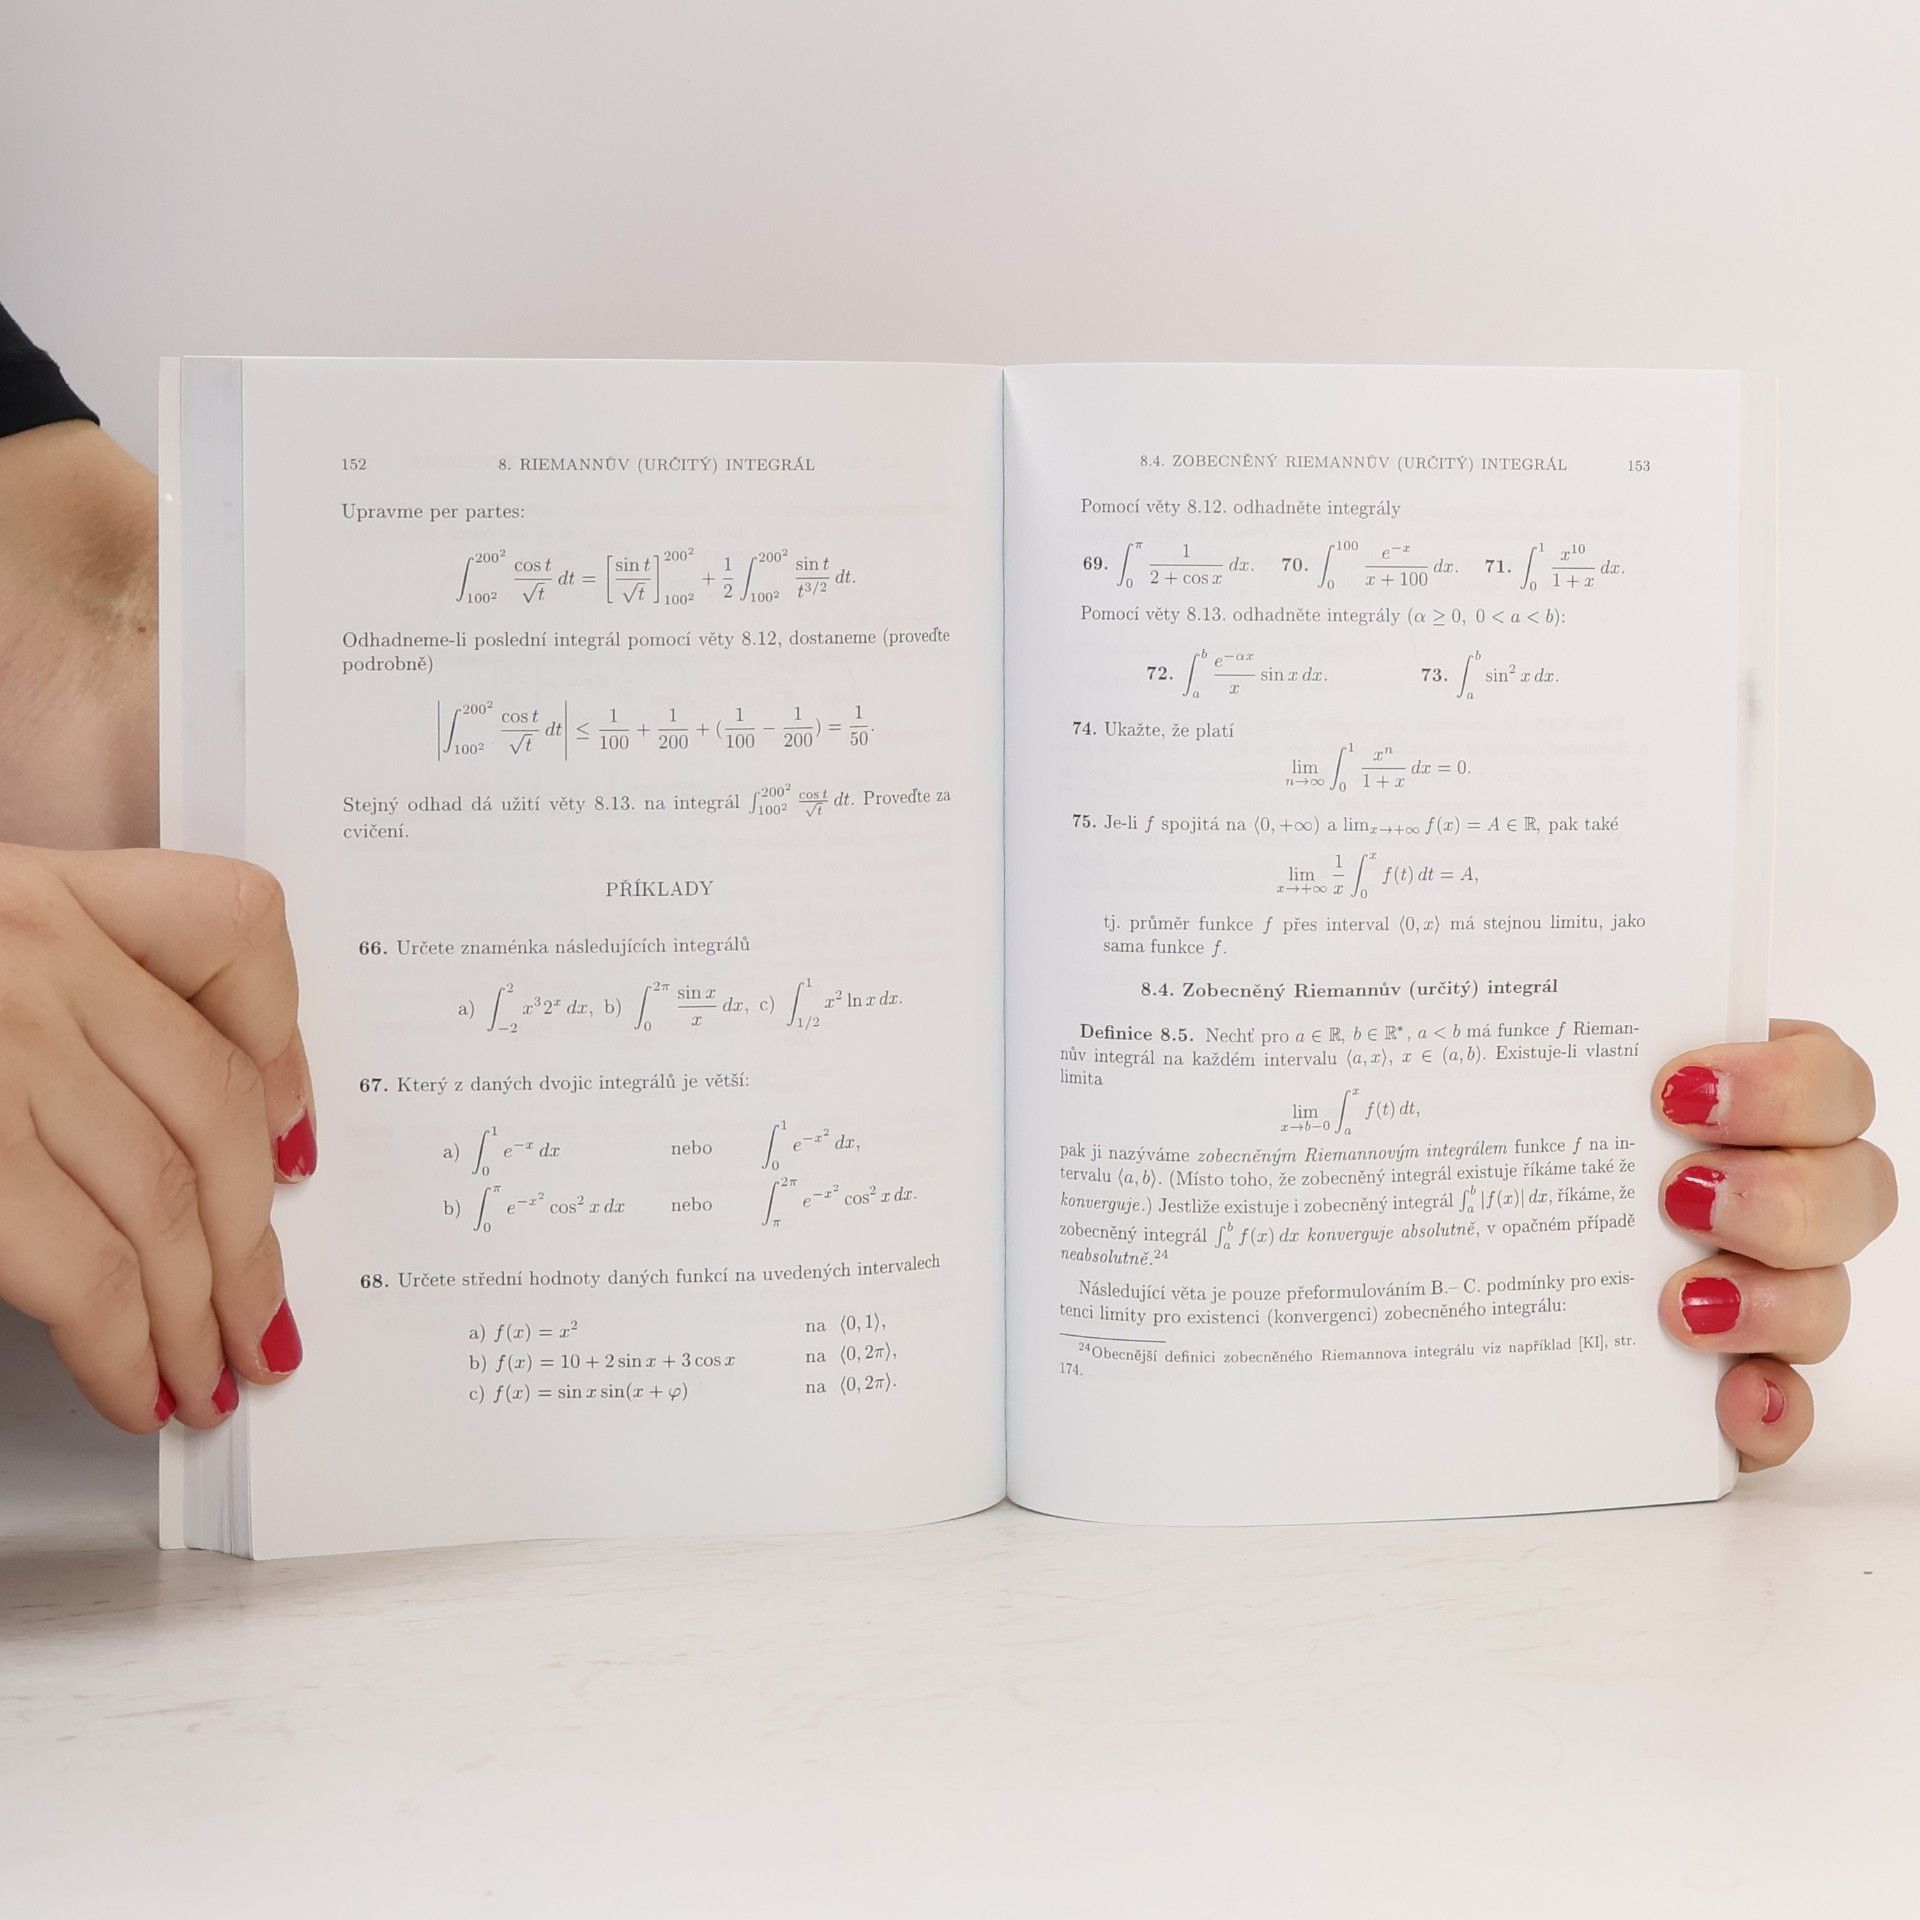 152 8. RIEMANNŮV (URČITÝ) INTEGRÁL
Upravme per partes:
∫_{100²}^{200²} cos t/√t dt = [sin t/√t]_{100²}^{200²} + 1/2 ∫_{100²}^{200²} sin t/t^{3/2} dt.
Odhadneme-li poslední integrál pomocí věty 8.12, dostaneme (proveďte
podrobně)
|∫_{100²}^{200²} cos t/√t dt| ≤ 1/100 + 1/200 + (1/100 − 1/200) = 1/50.
Stejný odhad dá užití věty 8.13. na integrál ∫_{100²}^{200²} cos t/√t dt. Proveďte za
cvičení.
PŘÍKLADY
66. Určete znaménka následujících integrálů
a) ∫_{−2}^{2} x³2ˣ dx, b) ∫_{0}^{2π} sin x/x dx, c) ∫_{1/2}^{1} x² ln x dx.
67. Který z daných dvojic integrálů je větší:
a) ∫_{0}^{1} e^{−x} dx nebo ∫_{0}^{1} e^{−x²} dx,
b) ∫_{0}^{π} e^{−x²} cos² x dx nebo ∫_{π}^{2π} e^{−x²} cos² x dx.
68. Určete střední hodnoty daných funkcí na uvedených intervalech
a) f(x) = x² na ⟨0, 1⟩,
b) f(x) = 10 + 2 sin x + 3 cos x na ⟨0, 2π⟩,
c) f(x) = sin x sin(x + φ) na ⟨0, 2π⟩.
8.4. ZOBECNĚNÝ RIEMANNŮV (URČITÝ) INTEGRÁL 153
Pomocí věty 8.12. odhadněte integrály
69. ∫_{0}^{π} 1/(2 + cos x) dx. 70. ∫_{0}^{100} e^{−x}/(x + 100) dx. 71. ∫_{0}^{1} x^{10}/(1 + x) dx.
Pomocí věty 8.13. odhadněte integrály (α ≥ 0, 0 < a < b):
72. ∫_{a}^{b} e^{−αx}/x sin x dx. 73. ∫_{a}^{b} sin² x dx.
74. Ukažte, že platí
lim_{n→∞} ∫_{0}^{1} xⁿ/(1 + x) dx = 0.
75. Je-li f spojitá na ⟨0, +∞) a lim_{x→+∞} f(x) = A ∈ ℝ, pak také
lim_{x→+∞} 1/x ∫_{0}^{x} f(t) dt = A,
tj. průměr funkce f přes interval ⟨0, x⟩ má stejnou limitu, jako
sama funkce f.
8.4. Zobecněný Riemannův (určitý) integrál
Definice 8.5. Nechť pro a ∈ ℝ, b ∈ ℝ*, a < b má funkce f Rieman-
nův integrál na každém intervalu ⟨a, x⟩, x ∈ (a, b). Existuje-li vlastní
limita
lim_{x→b−0} ∫_{a}^{x} f(t) dt,
pak ji nazýváme zobecněným Riemannovým integrálem funkce f na in-
tervalu ⟨a, b⟩. (Místo toho, že zobecněný integrál existuje říkáme také že
konverguje.) Jestliže existuje i zobecněný integrál ∫_{a}^{b} |f(x)| dx, říkáme, že
zobecněný integrál ∫_{a}^{b} f(x) dx konverguje absolutně, v opačném případě
neabsolutně.²⁴
Následující věta je pouze přeformulováním B.– C. podmínky pro exis-
tenci limity pro existenci (konvergenci) zobecněného integrálu:
²⁴Obecnější definici zobecněného Riemannova integrálu viz například [KI], str.
174.